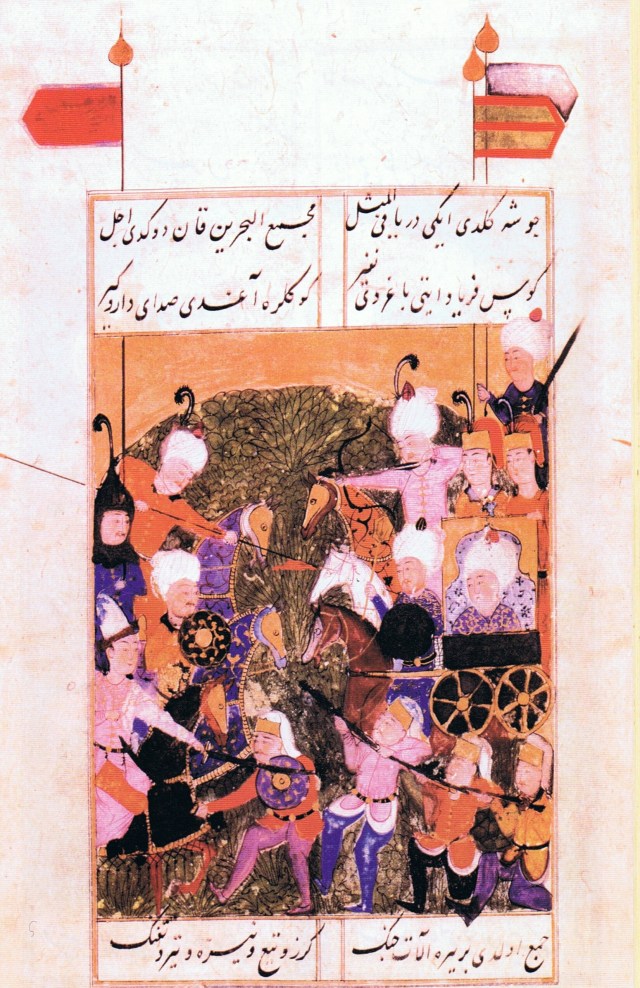 جوشه کلدی ایکی دریا فی المثل
مجمع البحرین قان دوکدی اجل
کوس فریاد ایتدی باغردی نفیر
کوکلره آغدی صدای داروکیر
جمع اولدی بریره آلات جنک
کرز و تیغ و نیزه و تیر و تفنک